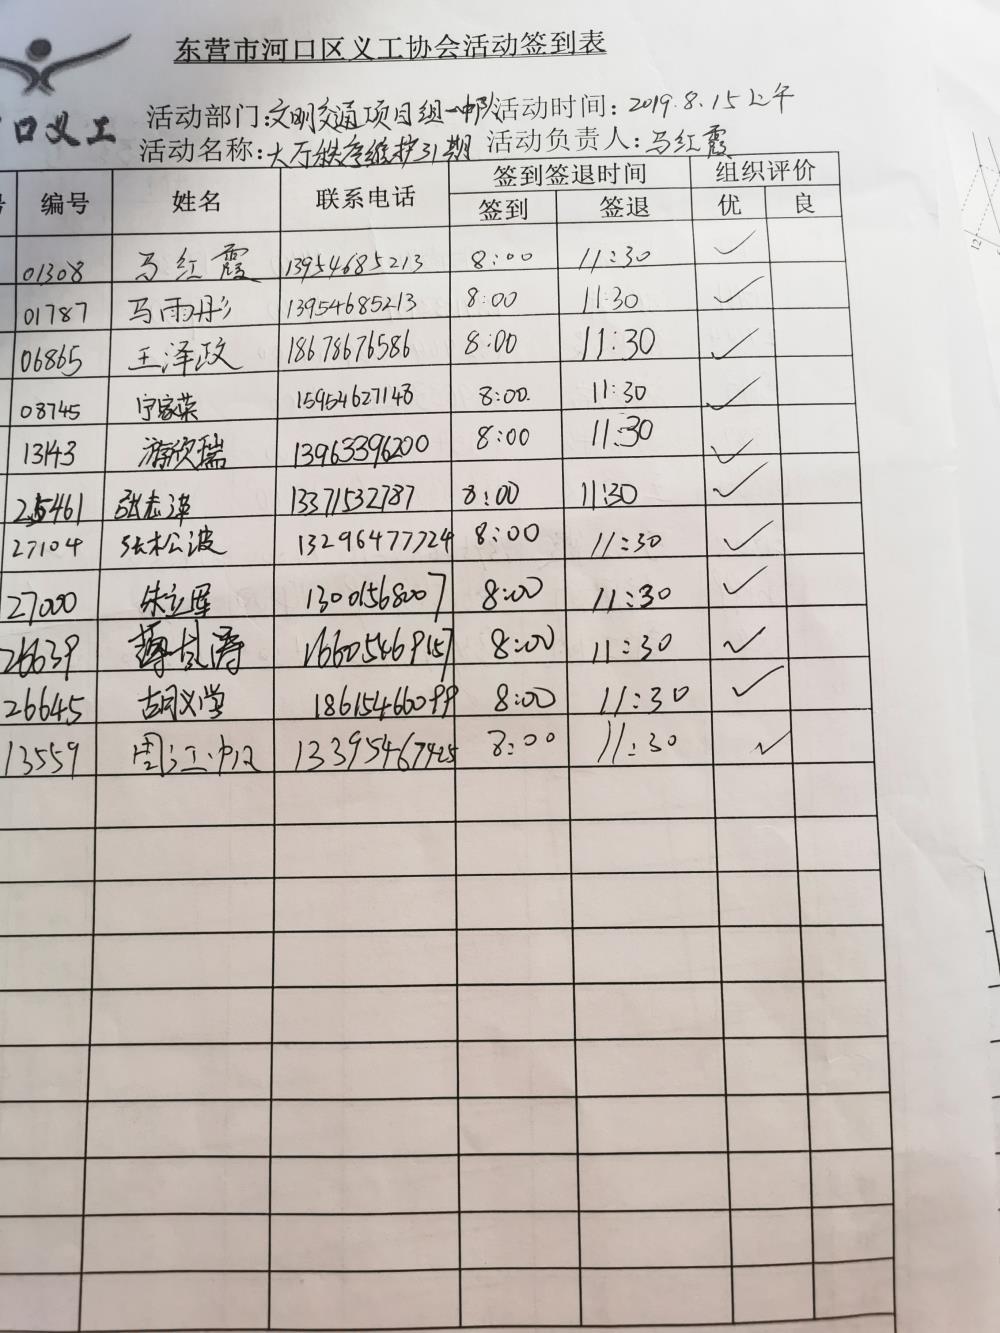 东营市河口区义工协会活动签到表
口义工
活动部门:文明交通项目组一中队 活动时间: 2019.8.15上午
活动名称:大厅秩序维护31期 活动负责人:马红霞
号 编号 姓名 联系电话 签到签退时间 组织评价
签到 签退 优 良
01308 马红霞 13954685213 8:00 11:30 ✓
01787 马雨彤 13954685213 8:00 11:30 ✓
06865 王泽政 18678676586 8:00 11:30 ✓
08745 宁家荣 15954627148 8:00. 11:30 ✓
13143 游欣瑞 13963396200 8:00 11:30 ✓
25461 张志 13371532787 8:00 11:30 ✓
27104 张松波 13296477724 8:00 11:30 ✓
27000 朱立军 13001568007 8:00 11:30 ✓
26639 8:00 11:30 ✓
26645 胡义学 18615466099 8:00 11:30 ✓
13559 周江 13395467425 8:00 11:30 ✓
12